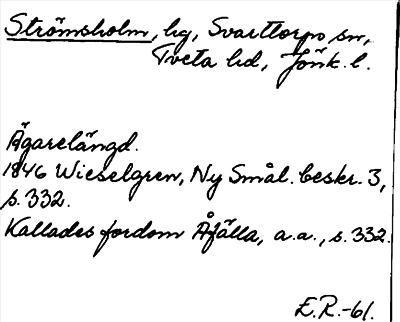 Strömsholm, hg, Svarttorps sn,
Tveta hd, Jönk. l.
Ägarelängd.
1846 Wieselgren, Ny Smål. beskr. 3,
s. 332.
Kallades fordom Åfälla, a.a., s. 332.
E.R.-61.